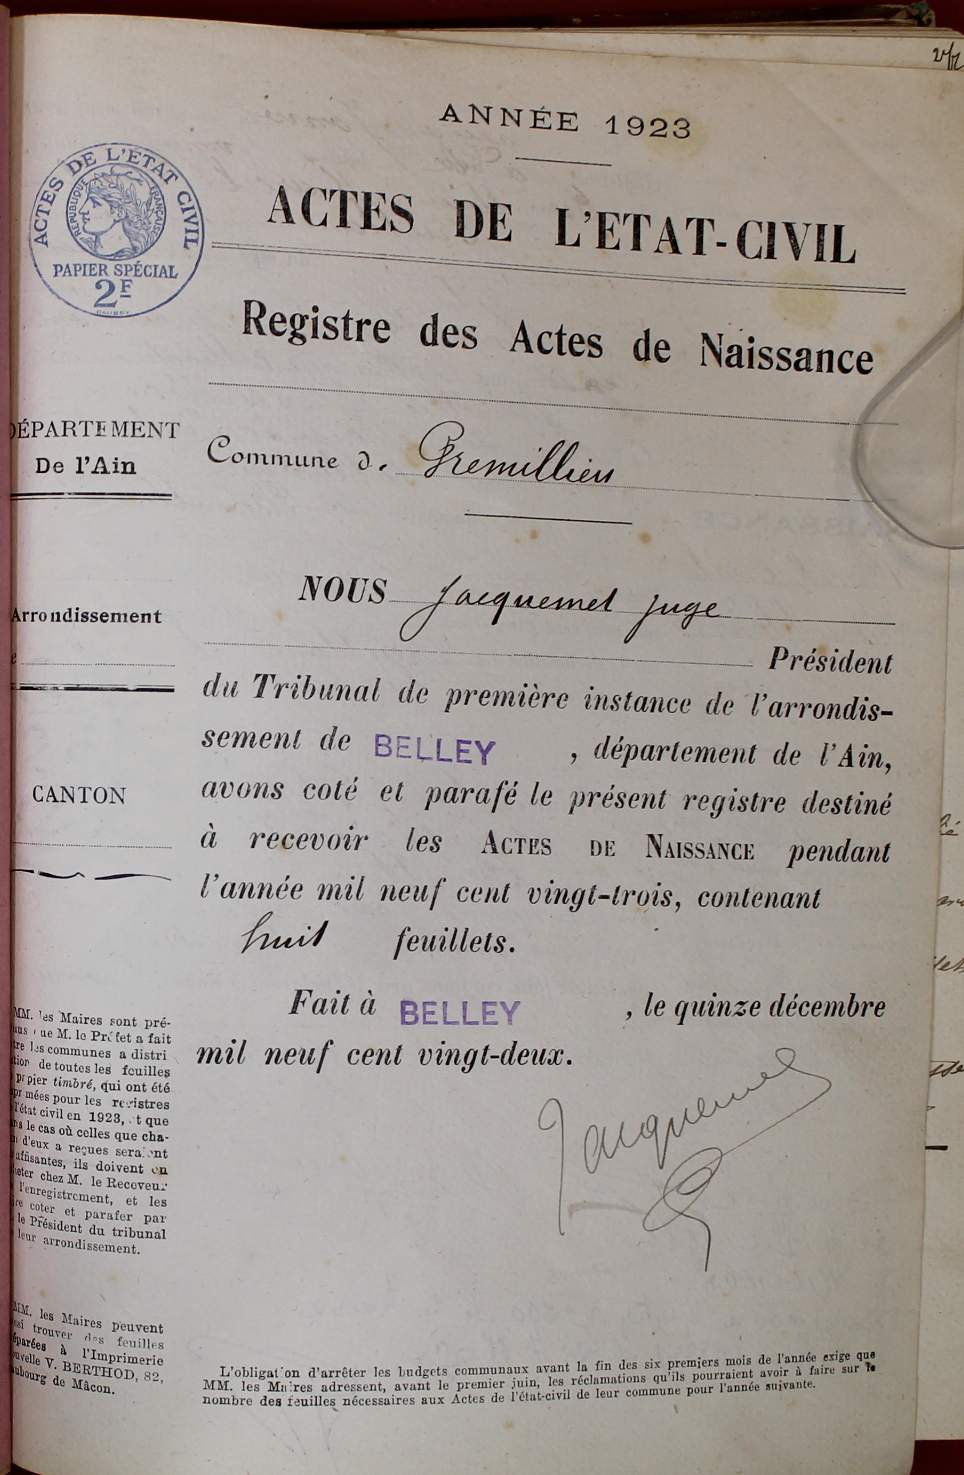 ANNÉE 1923
ACTES DE L'ETAT CIVIL
RÉPUBLIQUE FRANÇAISE
PAPIER SPÉCIAL
2F
ACTES DE L'ETAT-CIVIL
Registre des Actes de Naissance
DÉPARTEMENT
De l'Ain
Commune d. Premillieu
Arrondissement
CANTON
NOUS Jacquemet juge
Président
du Tribunal de première instance de l'arrondis-
sement de BELLEY , département de l'Ain,
avons coté et parafé le présent registre destiné
à recevoir les ACTES DE NAISSANCE pendant
l'année mil neuf cent vingt-trois, contenant
huit feuillets.
Fait à BELLEY , le quinze décembre
mil neuf cent vingt-deux.
Jacquemet
MM. les Maires sont pré-
que M. le Préfet a fait
les communes a distri
de toutes les feuilles
timbré, qui ont été
mées pour les registres
l'état civil en 1923, et que
le cas où celles que cha-
d'eux a reçues seraient
ils doivent en
chez M. le Receveur
l'enregistrement, et les
coter et parafer par
le Président du tribunal
leur arrondissement.
MM. les Maires peuvent
trouver des feuilles
à l'Imprimerie
V. BERTHOD, 82,
de Mâcon.
L'obligation d'arrêter les budgets communaux avant la fin des six premiers mois de l'année exige que
MM. les Maires adressent, avant le premier juin, les réclamations qu'ils pourraient avoir à faire sur le
nombre des feuilles nécessaires aux Actes de l'état-civil de leur commune pour l'année suivante.